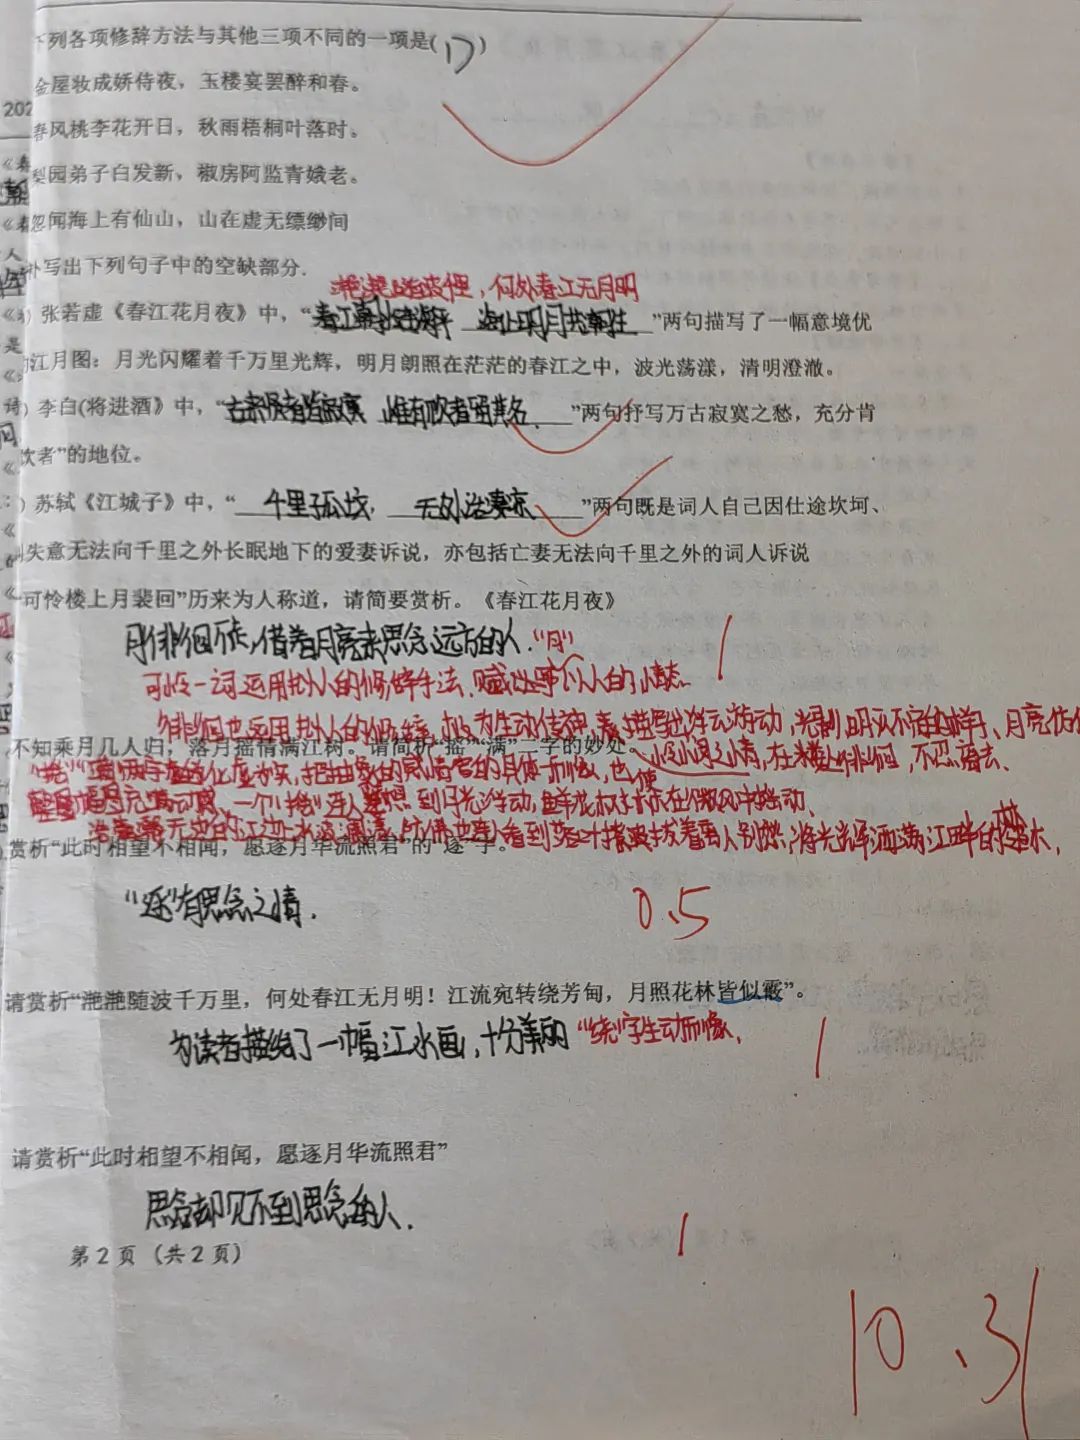 下列各项修辞方法与其他三项不同的一项是(D)
金屋妆成娇侍夜，玉楼宴罢醉和春。
202
春风桃李花开日，秋雨梧桐叶落时。
梨园弟子白发新，椒房阿监青娥老。
忽闻海上有仙山，山在虚无缥缈间
补写出下列句子中的空缺部分.
滟滟随波千万里，何处春江无月明
) 张若虚《春江花月夜》中，“春江潮水连海平 海上明月共潮生”两句描写了一幅意境优
的江月图：月光闪耀着千万里光辉，明月朗照在茫茫的春江之中，波光荡漾，清明澄澈。
) 李白(将进酒》中，“古来圣贤皆寂寞 惟有饮者留其名”两句抒写万古寂寞之愁，充分肯
饮者”的地位。
) 苏轼《江城子》中，“千里孤坟，无处话凄凉”两句既是词人自己因仕途坎坷、
失意无法向千里之外长眠地下的爱妻诉说，亦包括亡妻无法向千里之外的词人诉说
可怜楼上月裴回”历来为人称道，请简要赏析。《春江花月夜》
月徘徊不去，借着月亮来思念远方的人. “月” 1
可怜一词运用拟人的修辞手法，赋以事以人的情态
徘徊也运用拟人的修辞，极为生动传神，描写出浮云游动，光影明灭不定的样子、月亮仿佛
不知乘月几人归，落月摇情满江树。请简析“摇”“满”二字的妙处。
怀同之情，在楼上徘徊，不忍离去.
一个“摇”连人想到月光浮动，鲜花树木在微风中摇动.
赏析“此时相望不相闻，愿逐月华流照君”的“逐”字。
“逐”有思念之情. 0.5
请赏析“滟滟随波千万里，何处春江无月明！江流宛转绕芳甸，月照花林皆似霰”。
为读者描绘了一幅江水画，十分美丽 “绕”字生动形象， 1
请赏析“此时相望不相闻，愿逐月华流照君”
思念却见不到思念的人. 1
第2页（共2页）
10.31